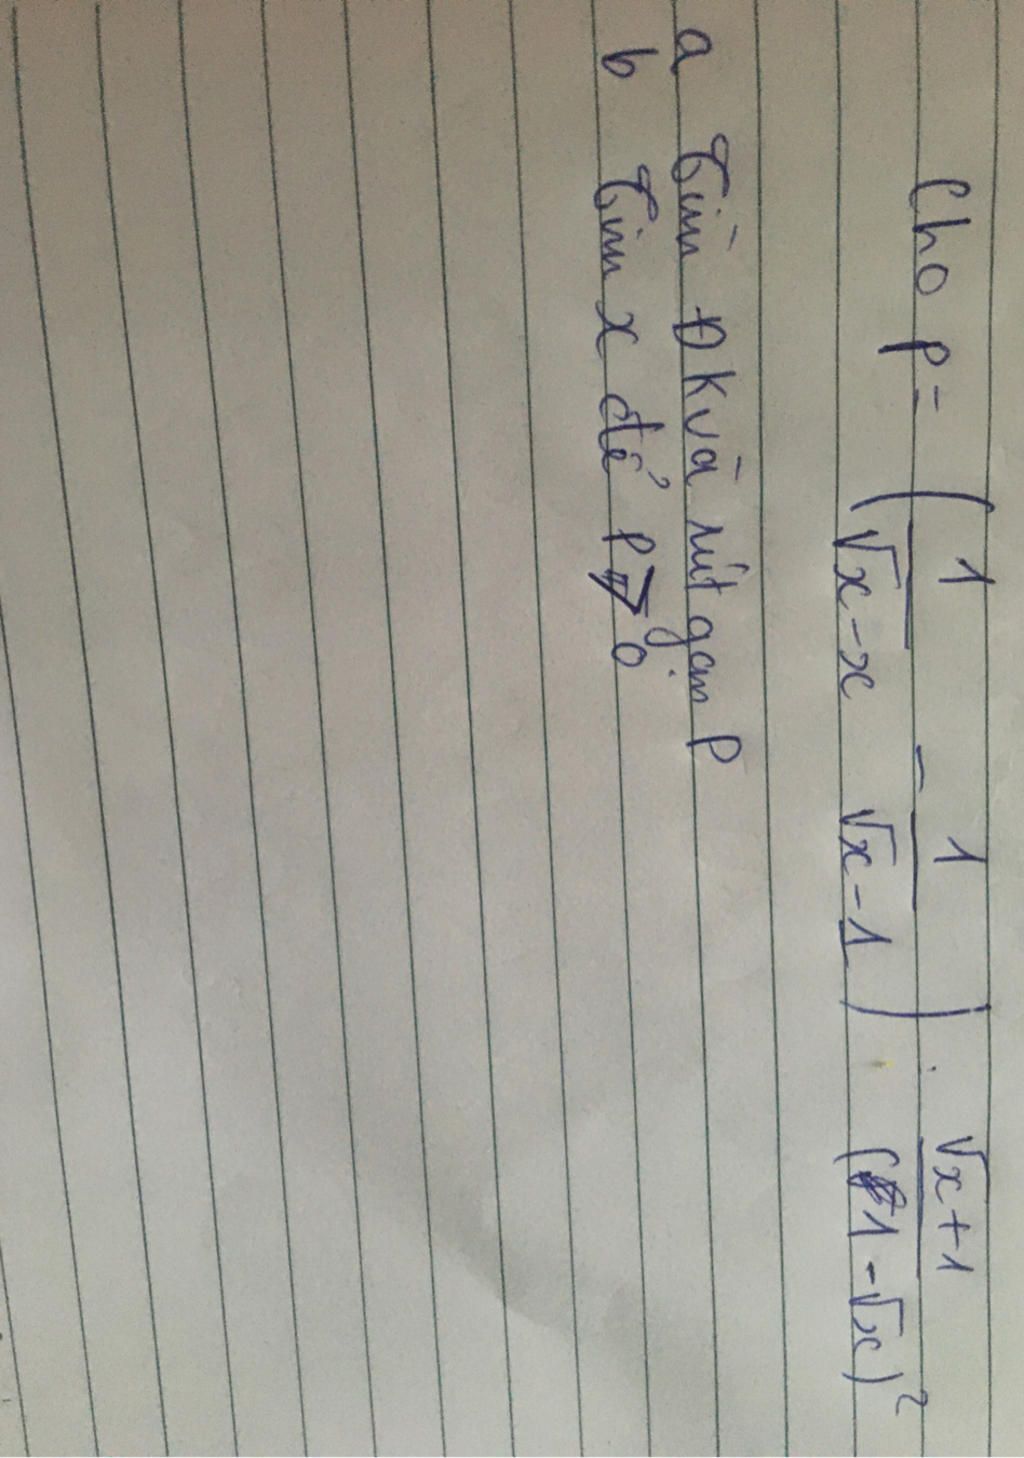 Cho P = ( 1/(√x - x) - 1/(√x - 1) ) . (√x + 1)/(1 - √x)²
a Tìm Đk và rút gọn P
b Tìm x để P > 0